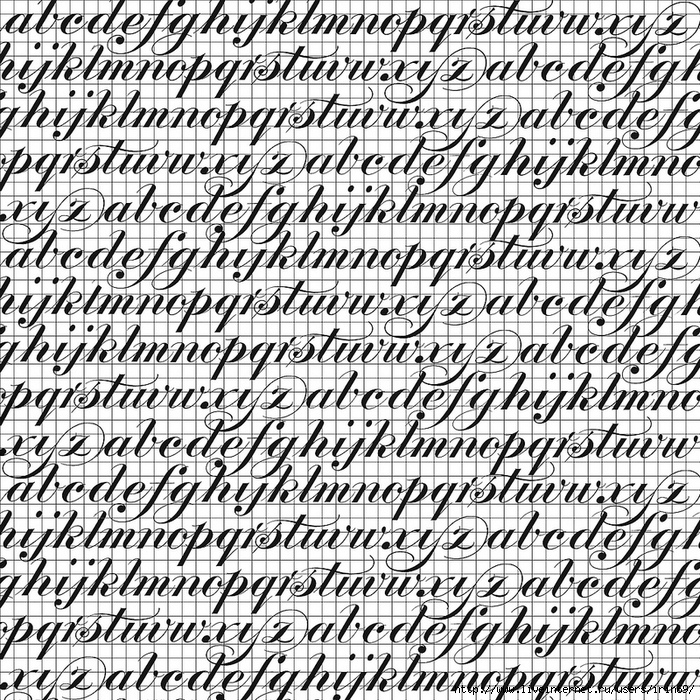 abcdefghijklmnopqrstuvwxyz
hijklmnopqrstuvwxyz abcdefgh
ghijklmnopqrstuvwxyz abcdefg
pqrstuvwxyz abcdefghijklmno
xyz abcdefghijklmnopqrstuvw
abcdefghijklmnopqrstuvwxyz
hijklmnopqrstuvwxyz abcdefgh
ghijklmnopqrstuvwxyz abcdefg
pqrstuvwxyz abcdefghijklmno
xyz abcdefghijklmnopqrstuvw
abcdefghijklmnopqrstuvwxyz
hijklmnopqrstuvwxyz abcdefgh
ghijklmnopqrstuvwxyz abcdefg
pqrstuvwxyz abcdefghijklmno
xyz abcdefghijklmnopqrstuvw